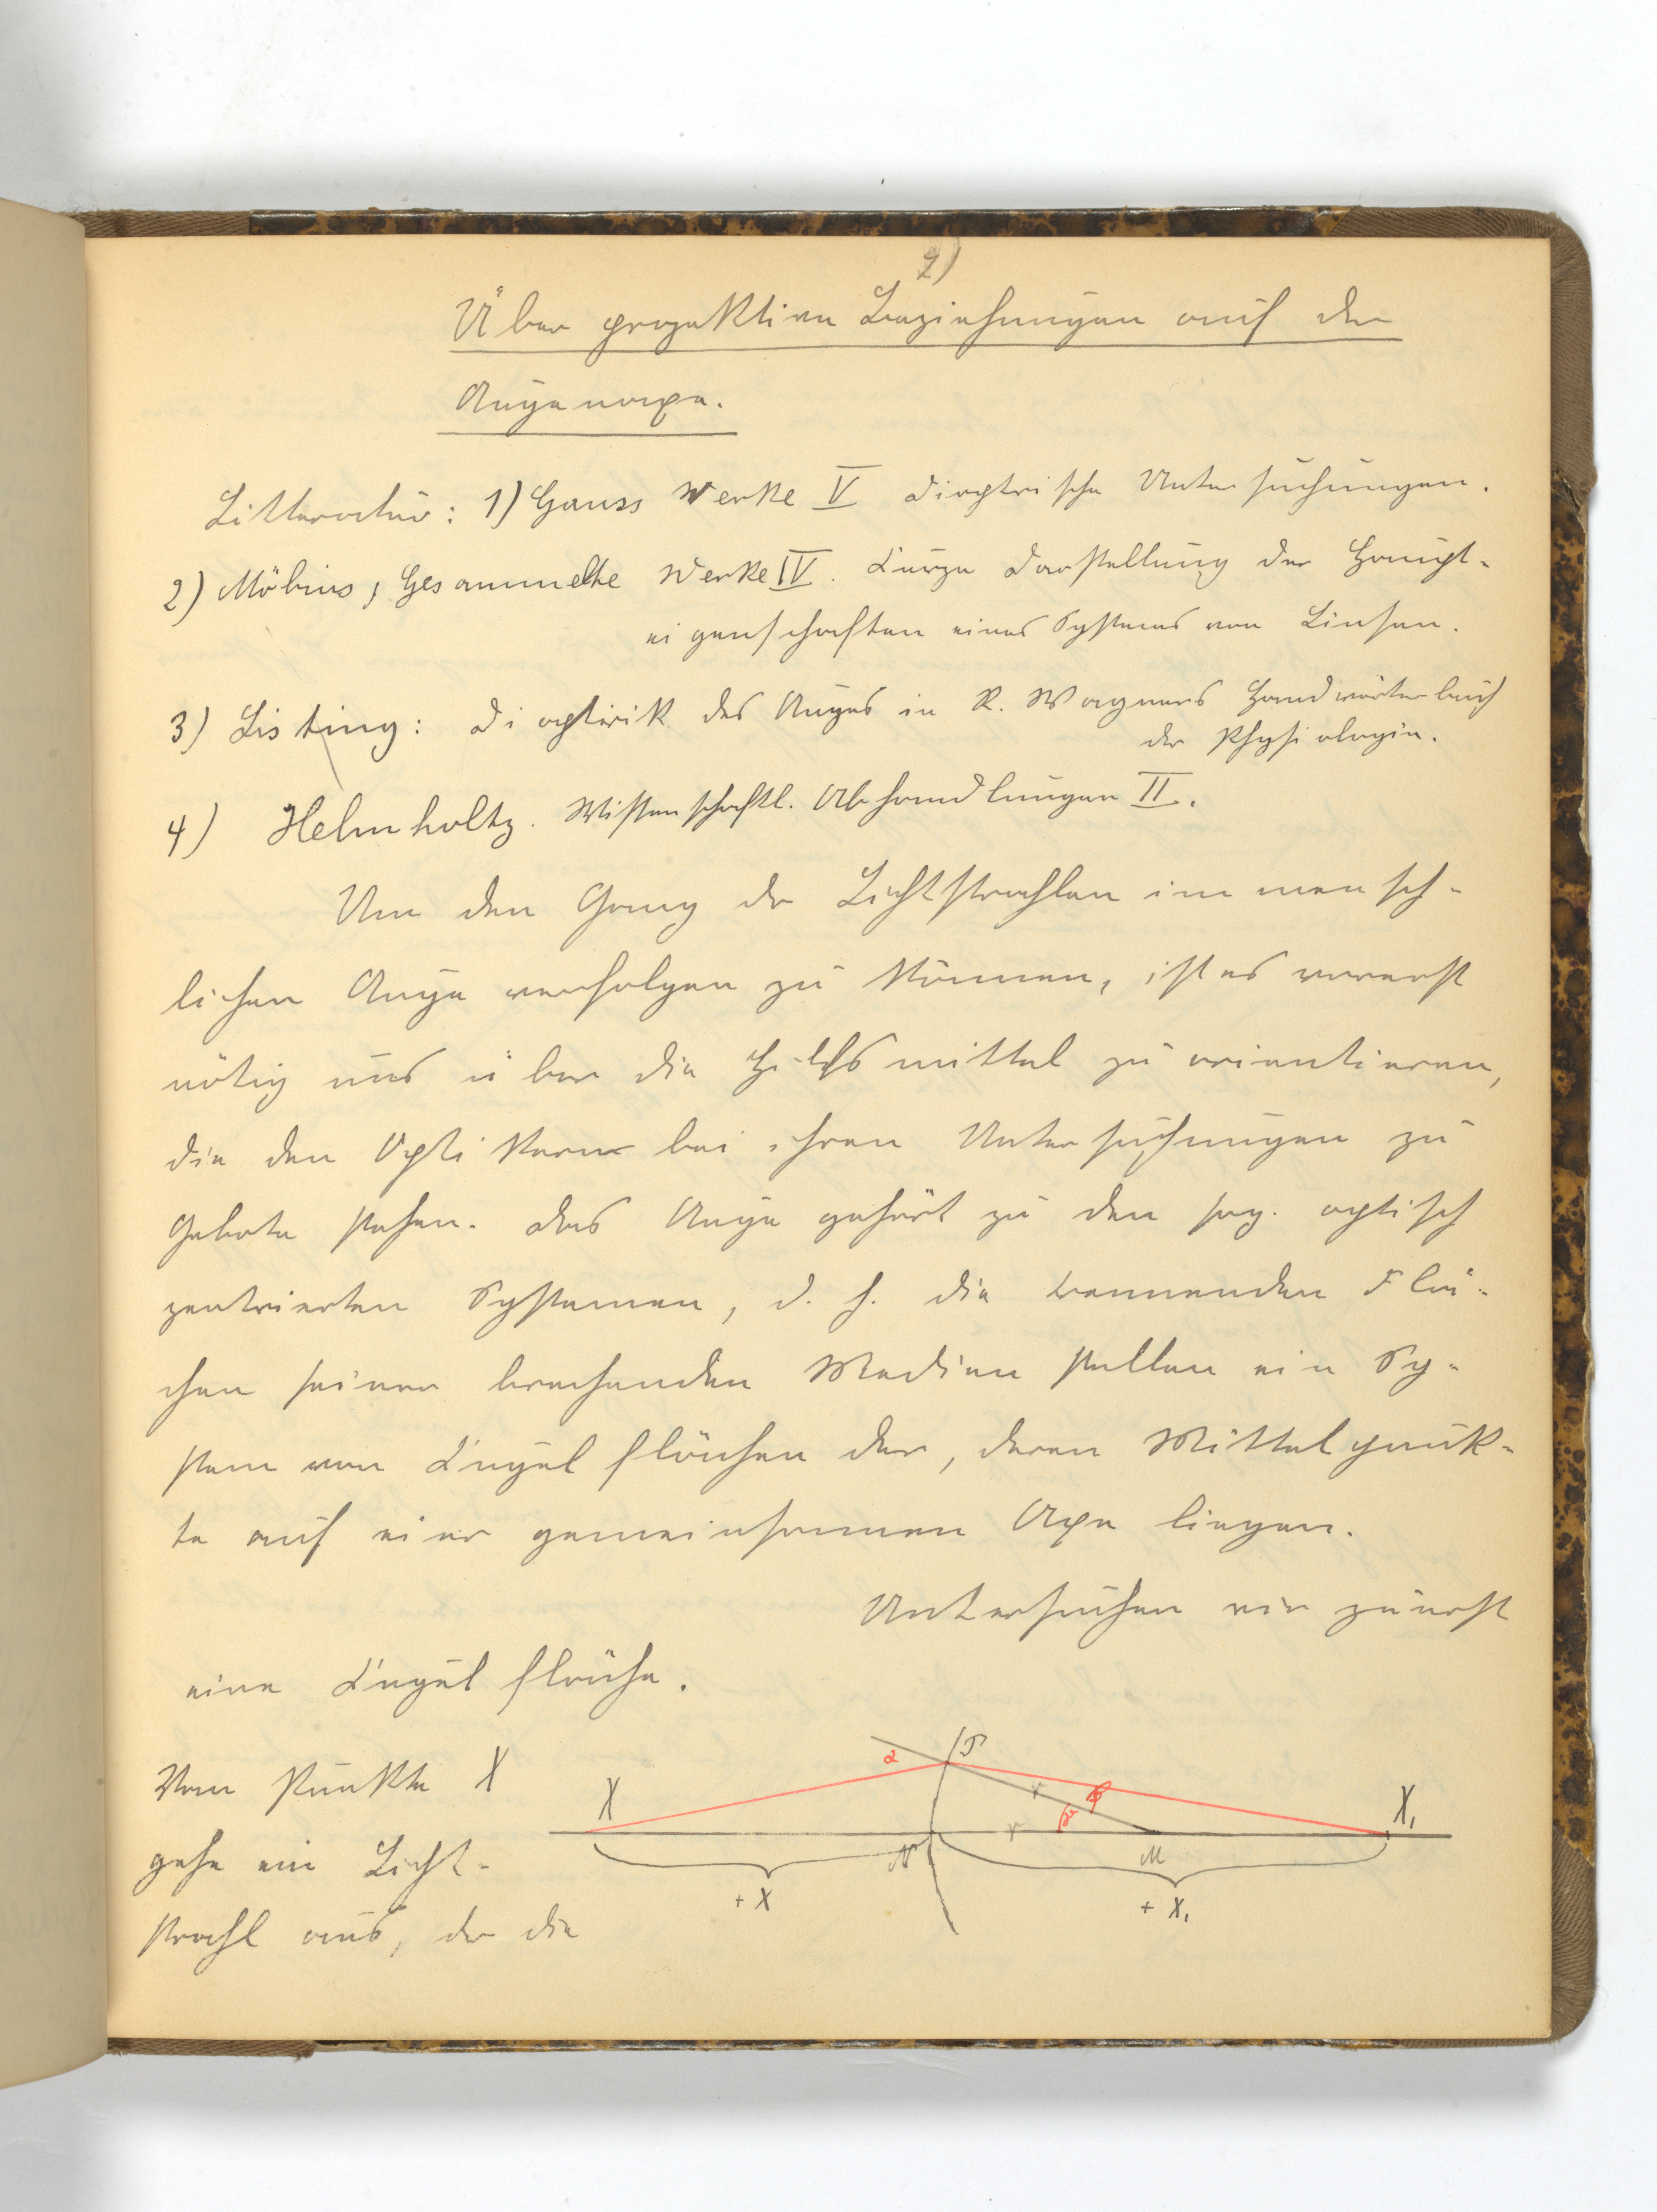 2)
Über projektive Beziehungen auf der
Augenaxe.
Litteratur: 1) Gauss Werke V dioptrische Untersuchungen.
2) Möbius, Gesammelte Werke IV. Kurze Darstellung der Haupt-
eigenschaften eines Systems von Linsen.
3) Listing: Dioptirik des Auges in R. Wagners Handwörterbuch
der Physiologie.
4) Helmholtz. Wissenschaftl. Abhandlungen II.
Um den Gang der Lichtstrahlen im mensch-
lichen Auge verfolgen zu können, ist es vorerst
nötig uns über die Hilfsmittel zu orientieren,
die den Optikern bei ihren Untersuchungen zu
Gebote stehen. Das Auge gehört zu den sog. optisch
zentrierten Systemen, d. h. die trennenden Flä-
chen seiner brechenden Medien stellen ein Sy-
stem von Kugelflächen dar, deren Mittelpunk-
te auf einer gemeinsamen Axe liegen.
Untersuchen wir zuerst
eine Kugelfläche.
Vom Punkte X
gehe ein Licht-
strahl aus, der die
α P
X r β X₁
r
N M
+ X + X₁